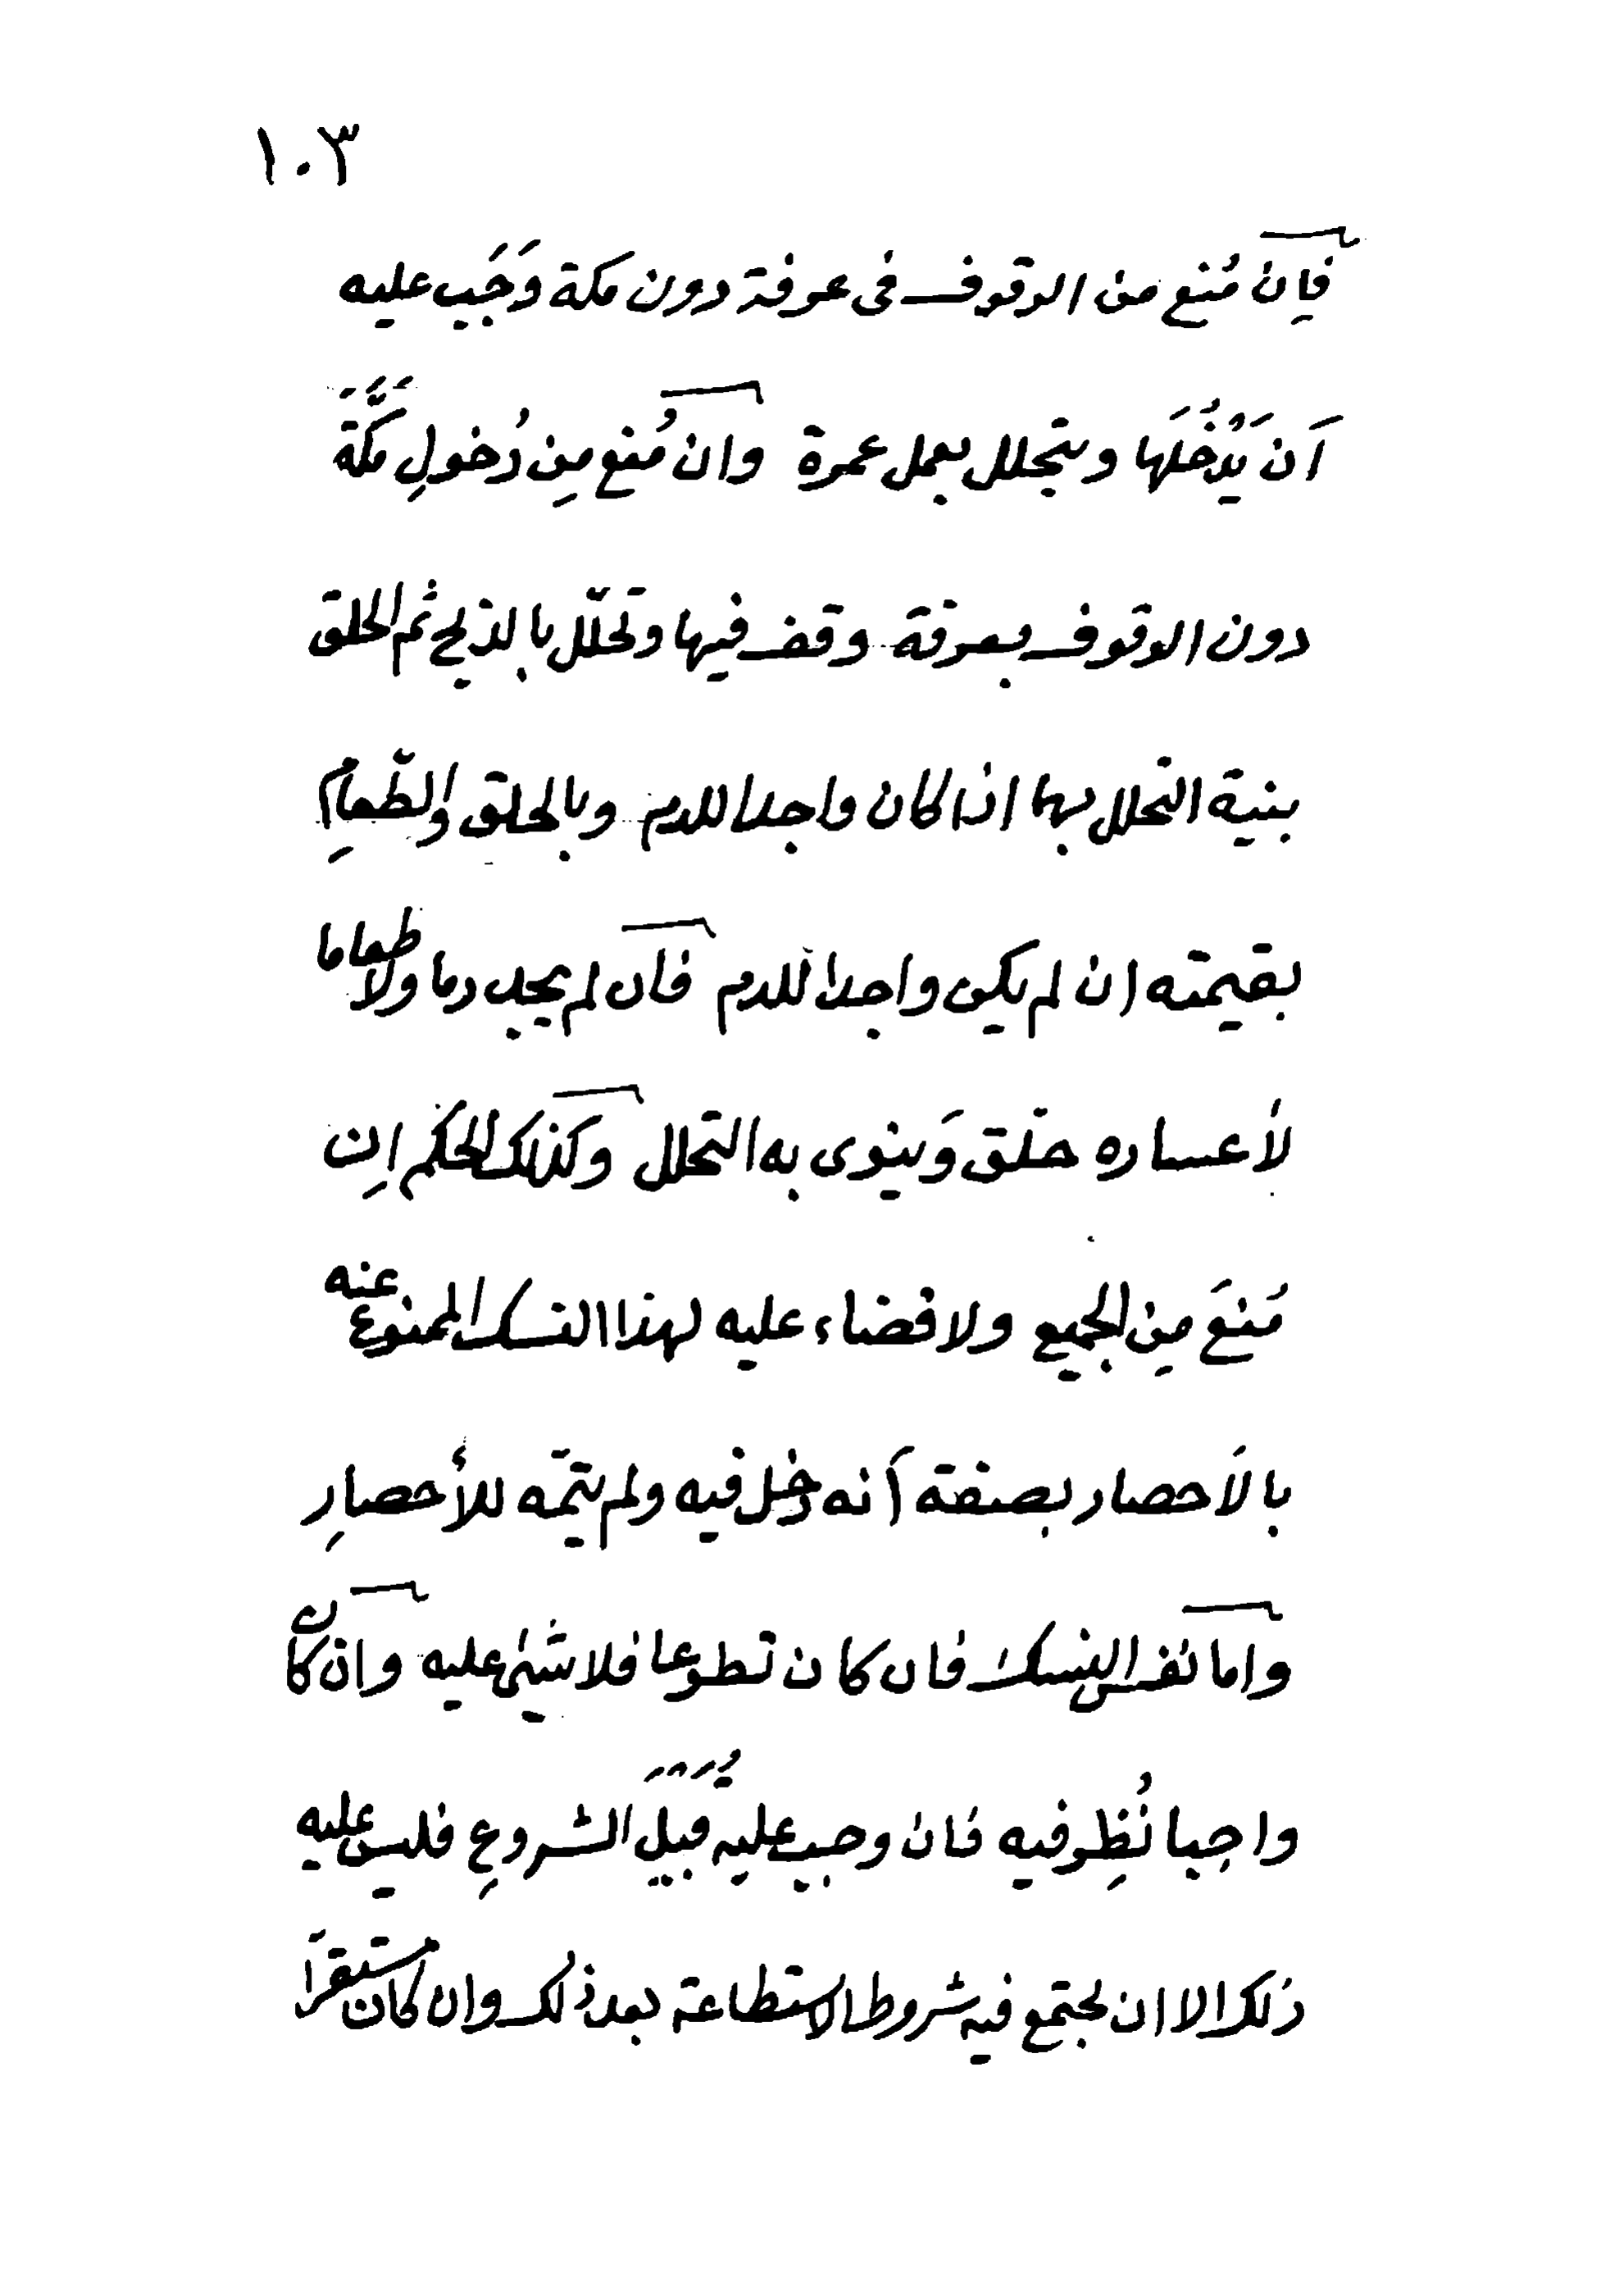 ١٠٣
فاِن مُنع من الوقوف فى عرفة دون مكة وَجَب عليه
اَن يَدْخُلَها ويتحلل بعمل عمرة وان مُنع مِن دُخولِ مَكَّةَ
دون الوقوف بعرفة وقف فيها وتحلّل بالذبح ثم الحلق
بنية التحلل بهما اذا كان واجدا للدم وبالحلق والطّعامِ
بقيمته ان لم يكن واجدا للدم فان لم يجد دما ولا طعاما
لأعساره حلق وَينوى به التحلل وكذلك الحكم اِن
مَنعَ مِن الجميع ولا قضاء عليه لهذا النسك الممنوع عنه
بالاَحصار بصفقة اَنه دخل فيه ولم يتمّه للأحصارِ
واما نفس النسك فان كان تطوعا فلا شيئ عليه وان كان
واجبا نُظِر فيه فان وجب عليه قُبَيْلَ الشروعِ فليس عليه
ذلك الا ان يجتمع فيه شروط الاستطاعة بعد ذلك وان كان مستقرَا